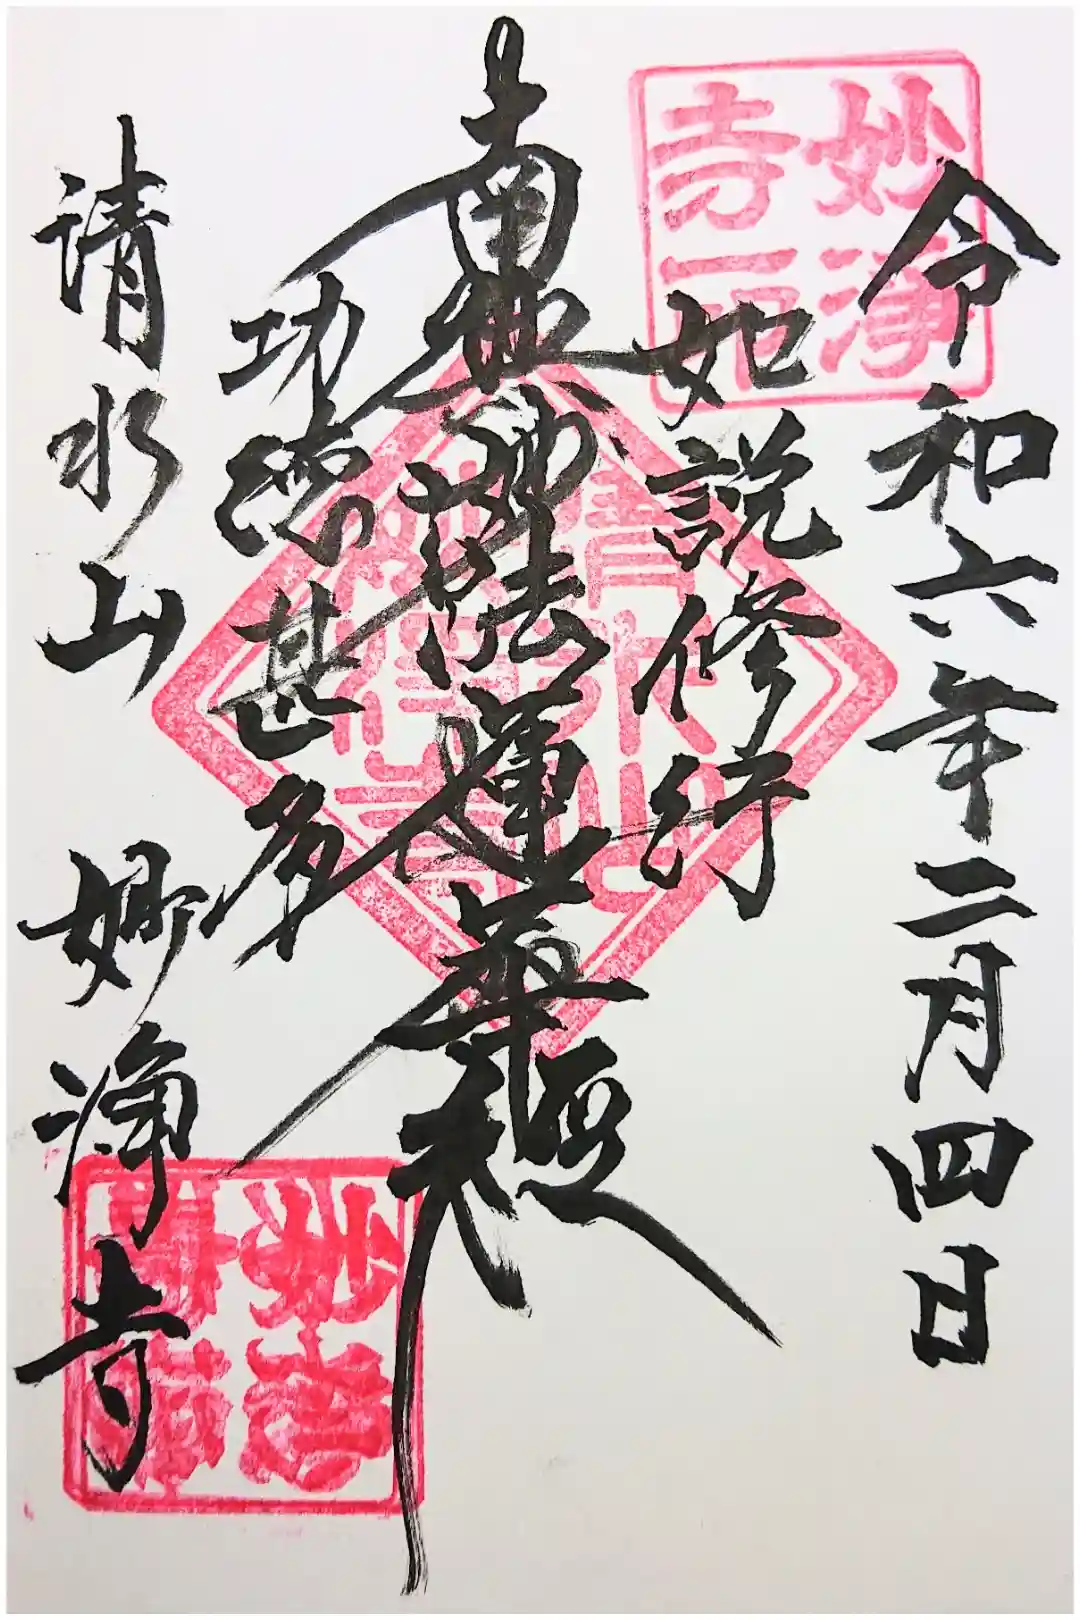 令和六年二月四日
如説修行
南無妙法蓮華経
功徳甚多
清水山 妙浄寺
妙浄
寺
清水山
妙浄寺
妙